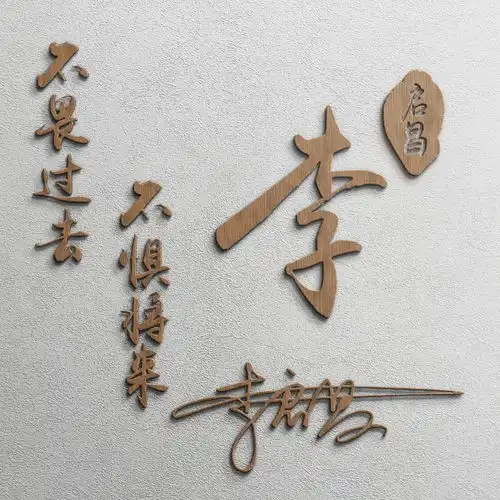 不畏过去
不惧将来
李
启昌
李启昌